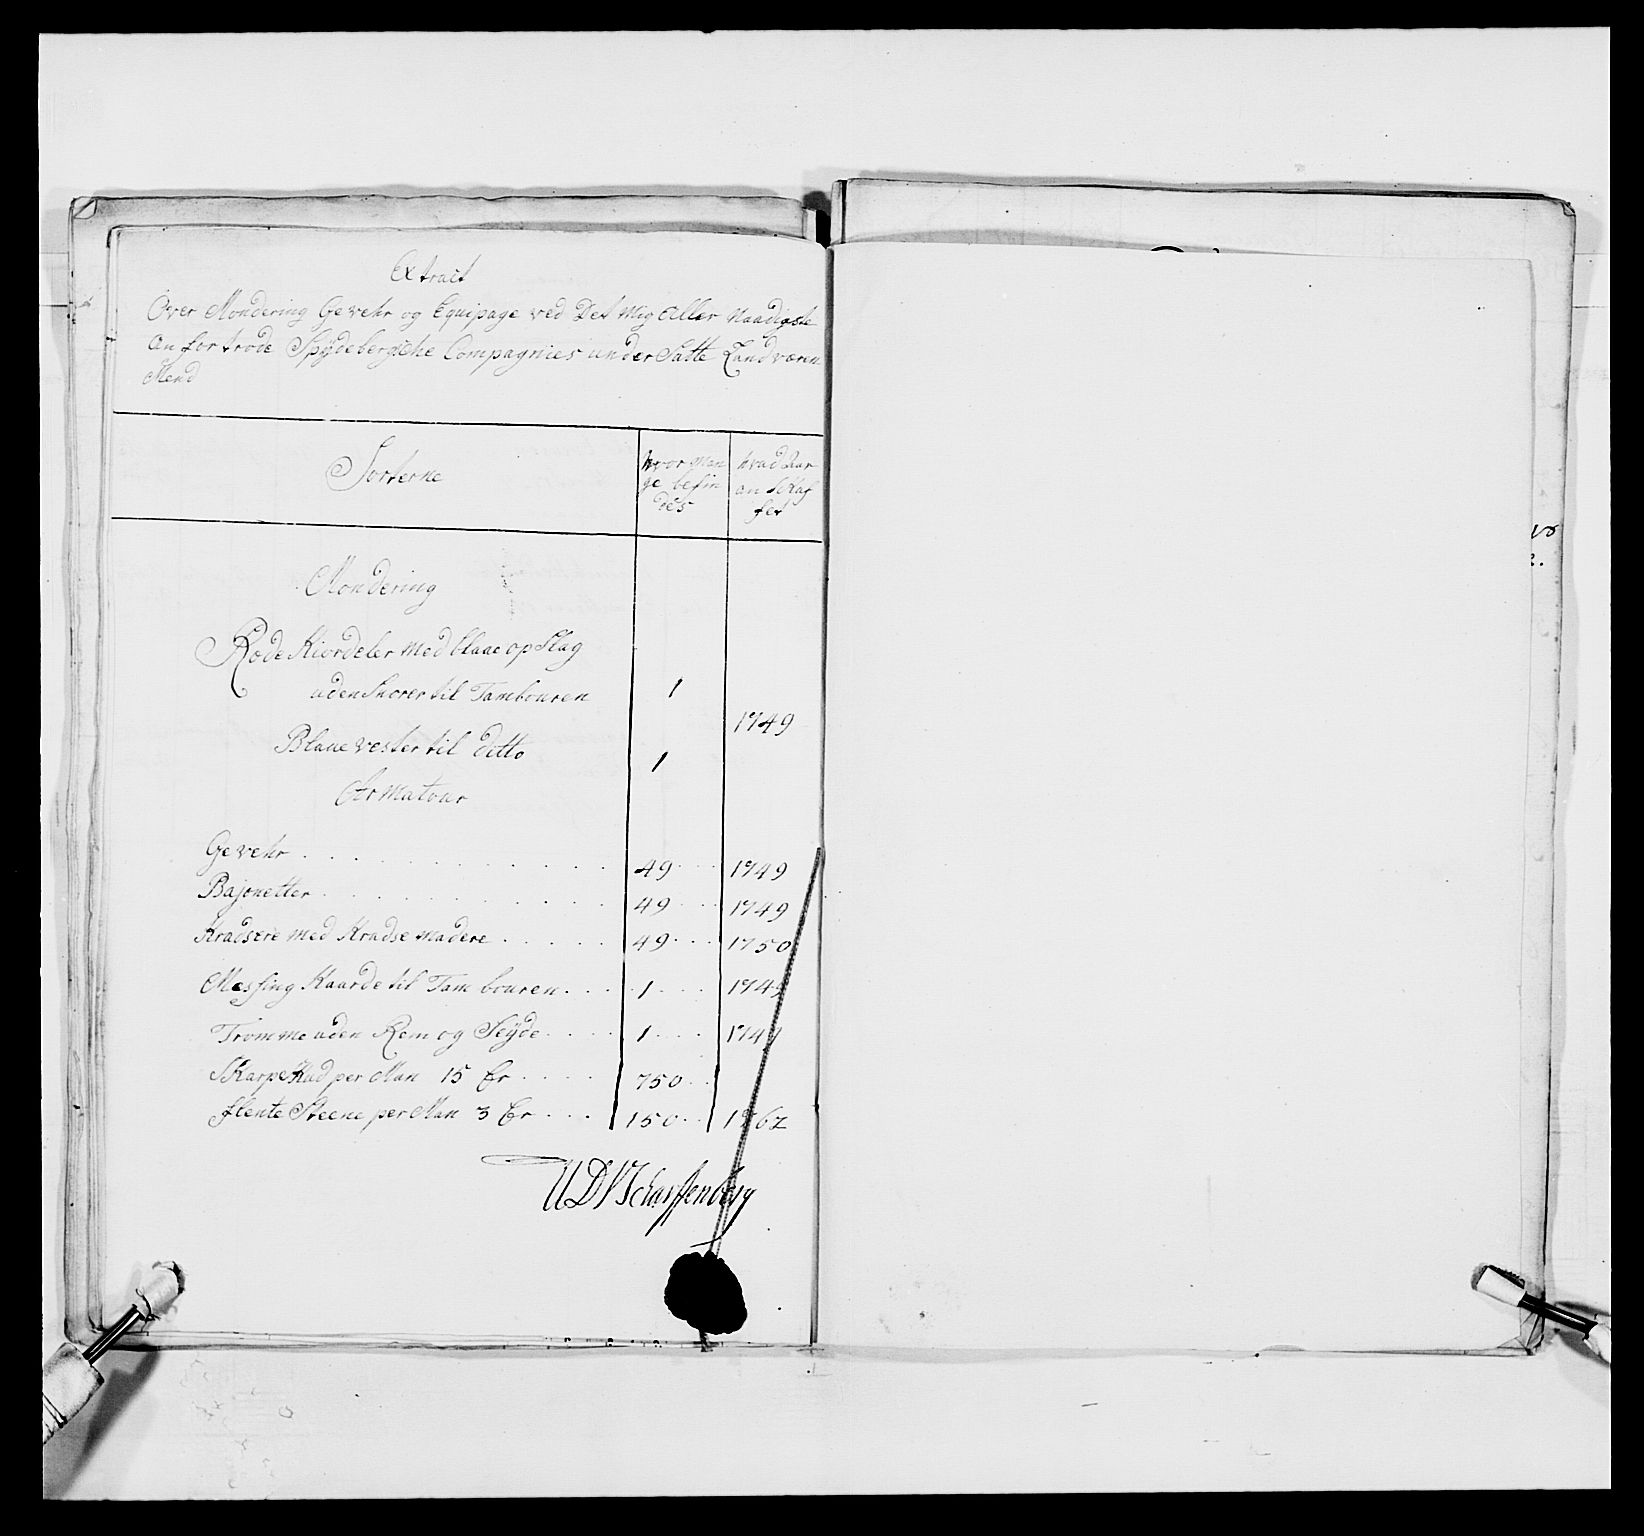 Extract
Over Mondering Gevehr og Equipage ved Det Mig Aller Naadigste
An fortrode Spÿdebergiche Compagnies under Satte Landværn
Mend
Sorterne
hvor Man
ge befin
des
hvad Aar
an Skaf
fet
Mondering
Røde Kiordeler Med blaae op Slag
uden Snorer til Tambouren 1
1749
Blaue vester til ditto 1
Armatour
Gevehr 49 1749
Bajonetter 49 1749
Kradsere med Kradse madere 49 1750
Messing Kaarde til Tambouren 1
Tromme uden Rem og Seÿde 1
Skarpe Kud per Man 15 Er 750
flente Steene per Man 3 Er 150 1762